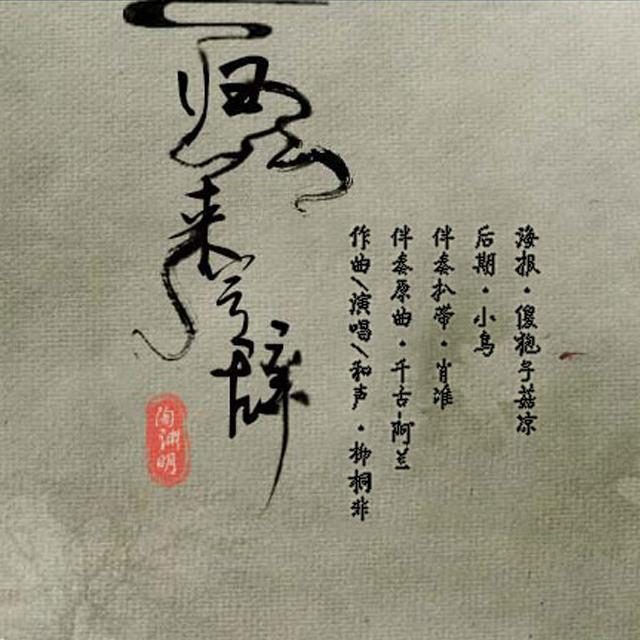 归去来兮辞
陶渊明
作曲/演唱/和声·柳桐非
伴奏原曲·千古-阿兰
伴奏扒带·肖淮
后期·小鸟
海报·傻狍子菇凉